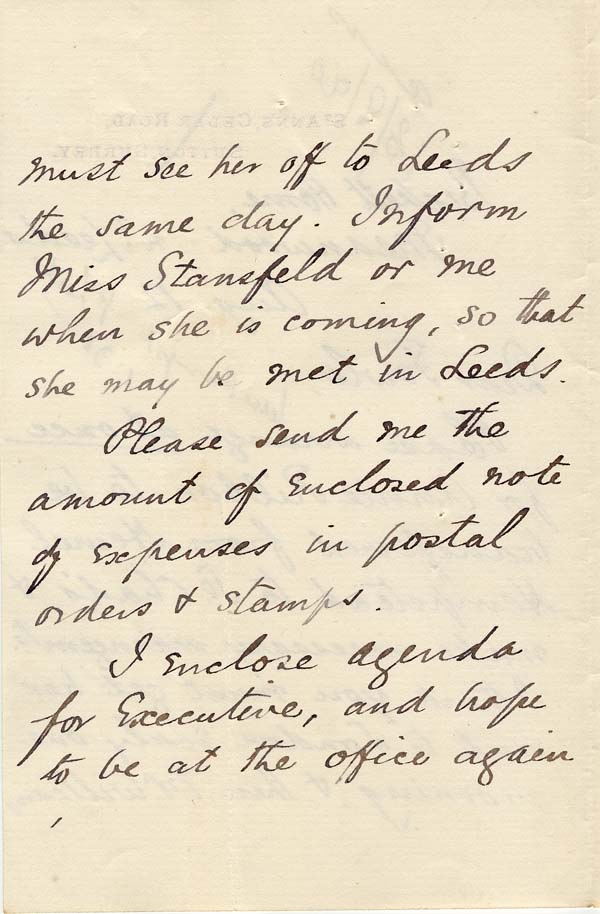 must see her off to Leeds
the same day. Inform
Miss Stansfeld or me
when she is coming, so that
she may be met in Leeds.
Please send me the
amount of enclosed note
of expenses in postal
orders & stamps.
I enclose agenda
for Executive, and hope
to be at the office again